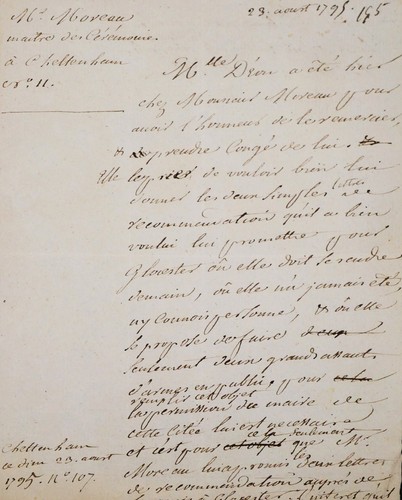 23. aoust 1795. 165
Mr. Moreau
maitre des Cérémonies
à Cheltenham
no. 11.
Mlle Déon a été hier
chez Monsieur Moreau pour
avoir l'honneur de le remercier,
& de prendre Congé de lui.
Elle le prie de vouloir bien lui
donner les deux simples lettres de
recommendation qu'il a bien
voulu lui promettre pour
Glocester où elle doit se rendre
demain, où elle n'a jamais été,
n'y connois personne, & où elle
se propose de faire
seulement deux grands assauts
d'armes en public, pour
remplir cet objet
la permission du maire de
cette Citée lui est necessaire
et c'est pour cet objet que Mr.
à la seulement
Moreau lui a promis les deux lettres
de recommendation auprès de
Cheltenham
ce dim. 23. aoust
1795. No. 107.